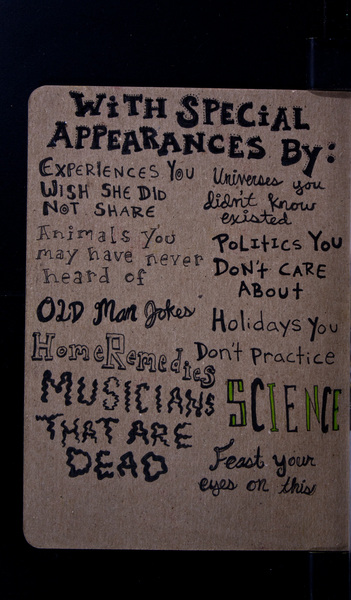 WITH SPECIAL
APPEARANCES BY:
EXPERIENCES YOU
WISH SHE DID
NOT SHARE
Animals you
may have never
heard of
OLD Man Jokes
HomeRemedies
MUSICIANS
THAT ARE
DEAD
Universes you
didn't know
existed
POLITICS YOU
DON'T CARE
ABOUT
Holidays You
Don't Practice
SCIENCE
Feast your
eyes on this